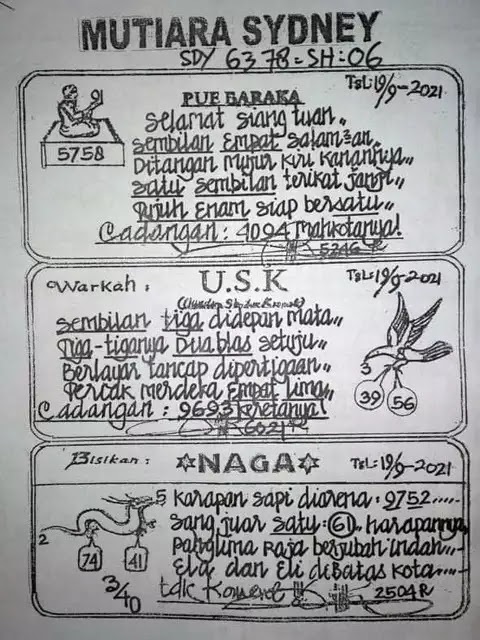 MUTIARA SYDNEY
SDY 6378=SH:06
TSL: 19/9-2021
PUE BARAKA
5758
Selamat siang tuan..
Sembilan Empat salam²an..
Ditangan mujur kiri kanannya..
Satu Sembilan terikat janji..
Tujuh Enam siap bersatu..
Cadangan : 4094 Mahkotanya!
5246 R
Warkah :
U.S.K
TSL: 19/9-2021
Sembilan tiga didepan mata..
Tiga-tiganya Duablas setuju..
Berlayar tancap dipertigaan..
Percak merdeka Empat lima..
Cadangan : 9693 Keretanya!
6021 R
3
39
56
Bisikan :
☆NAGA☆
TSL: 19/9-2021
5
Karapan sapi diarena : 9752.....
Sang juar satu : 61 harapannya
Panglima Raja berjubah indah..
Ela dan Eli dibatas kota....
2
74
41
3/40
tdk
2504 R